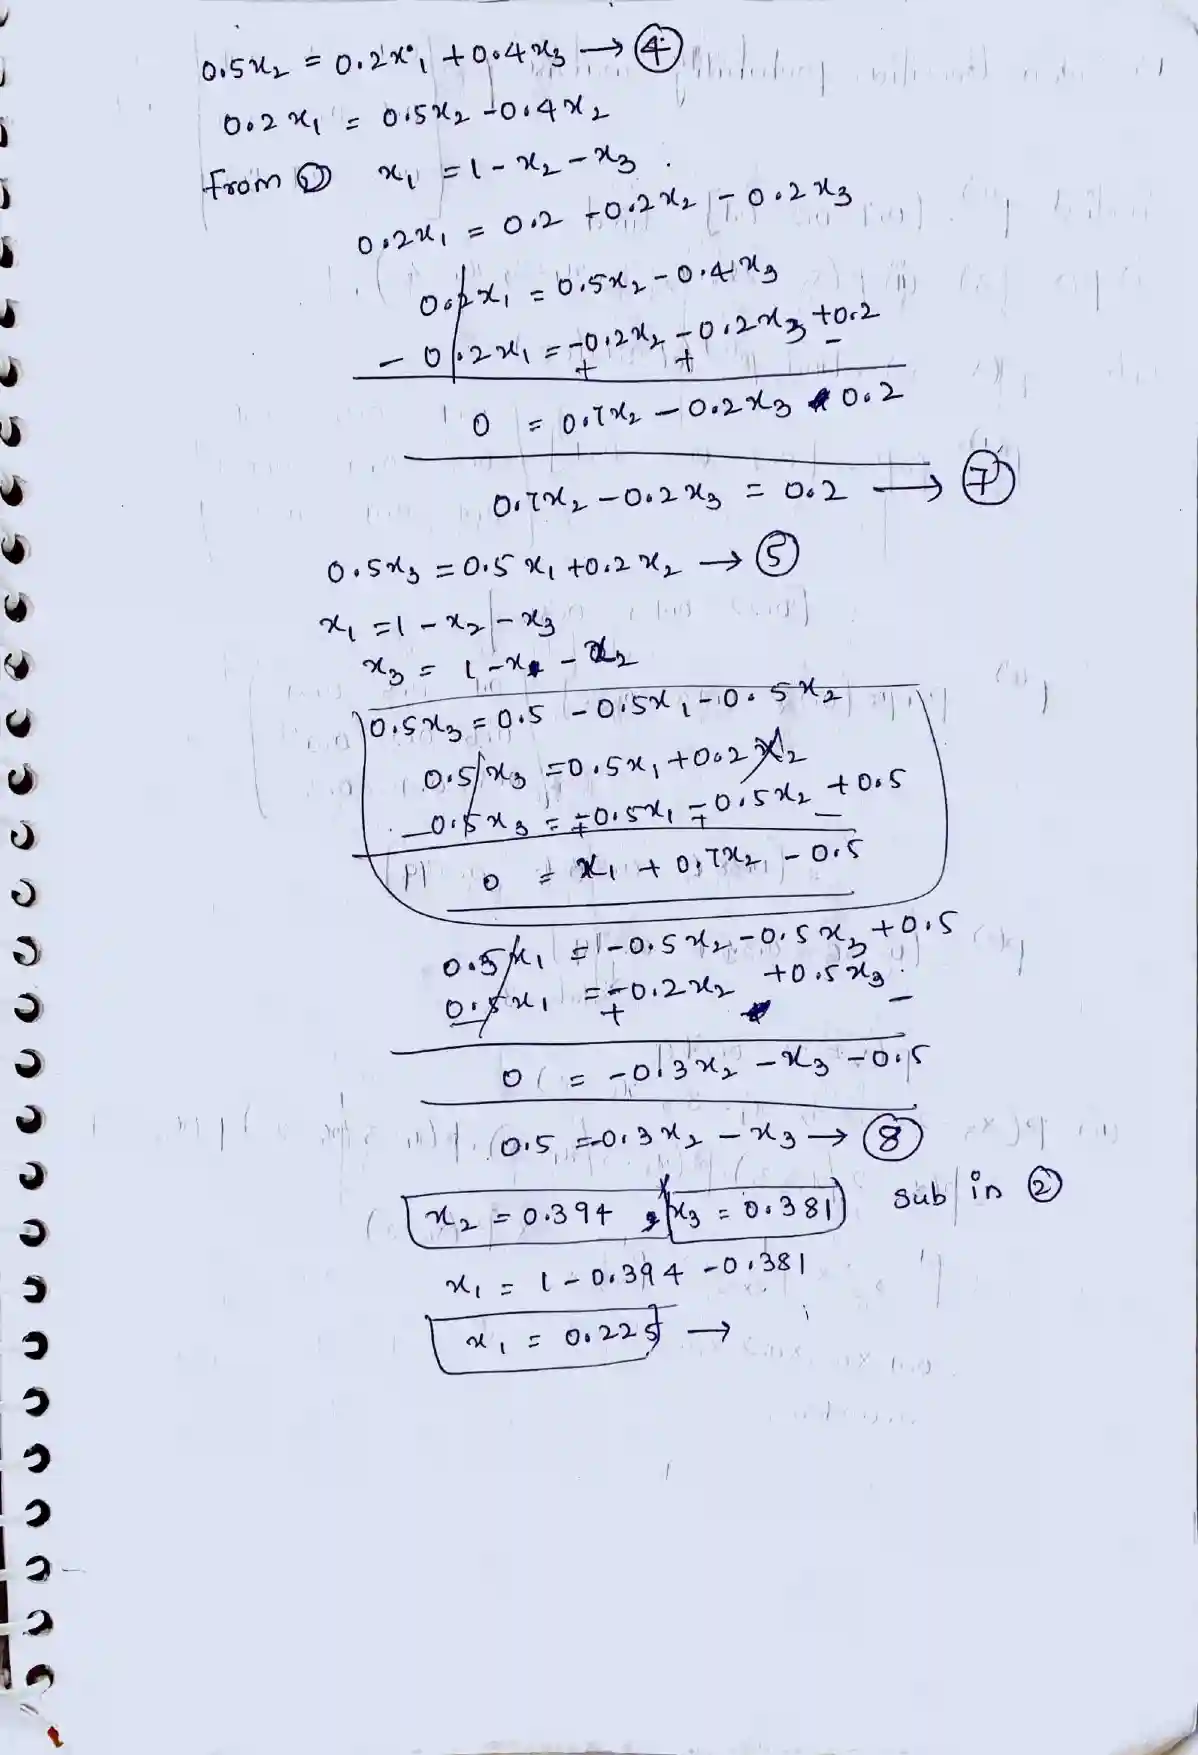 0.5x₂ = 0.2x₁ + 0.4x₃ → ④
0.2x₁ = 0.5x₂ - 0.4x₂
from ② x₁ = 1 - x₂ - x₃
0.2x₁ = 0.2 - 0.2x₂ - 0.2x₃
0.2x₁ = 0.5x₂ - 0.4x₃
- 0.2x₁ = -0.2x₂ - 0.2x₃ + 0.2
+ + -
0 = 0.7x₂ - 0.2x₃ 0.2
0.7x₂ - 0.2x₃ = 0.2 → ⑦
0.5x₃ = 0.5x₁ + 0.2x₂ → ⑤
x₁ = 1 - x₂ - x₃
x₃ = 1 - x₁ - x₂
0.5x₃ = 0.5 - 0.5x₁ - 0.5x₂
0.5x₃ = 0.5x₁ + 0.2x₂
- 0.5x₃ = -0.5x₁ - 0.5x₂ + 0.5
+ + -
0 = x₁ + 0.7x₂ - 0.5
0.5x₁ = -0.5x₂ - 0.5x₃ + 0.5
0.5x₁ = -0.2x₂ + 0.5x₃
- + -
0 = -0.3x₂ - x₃ - 0.5
0.5 = -0.3x₂ - x₃ → ⑧
x₂ = 0.394 , x₃ = 0.381 sub in ②
x₁ = 1 - 0.394 - 0.381
x₁ = 0.225 →